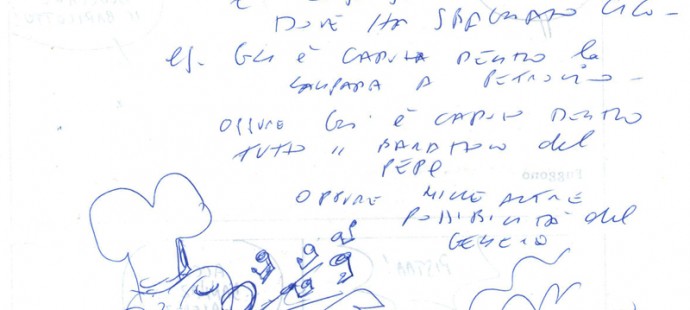 DOVE HA SBAGLIATO
es. GLI È CADUTA DENTRO la
LAMPADA A PETROLIO -
OPPURE GLI È CADUTO DENTRO
TUTTO IL BARATTOLO del
PEPE
Fuggono
OPPURE MILLE ALTRE
POSSIBILITÀ del
GENERE